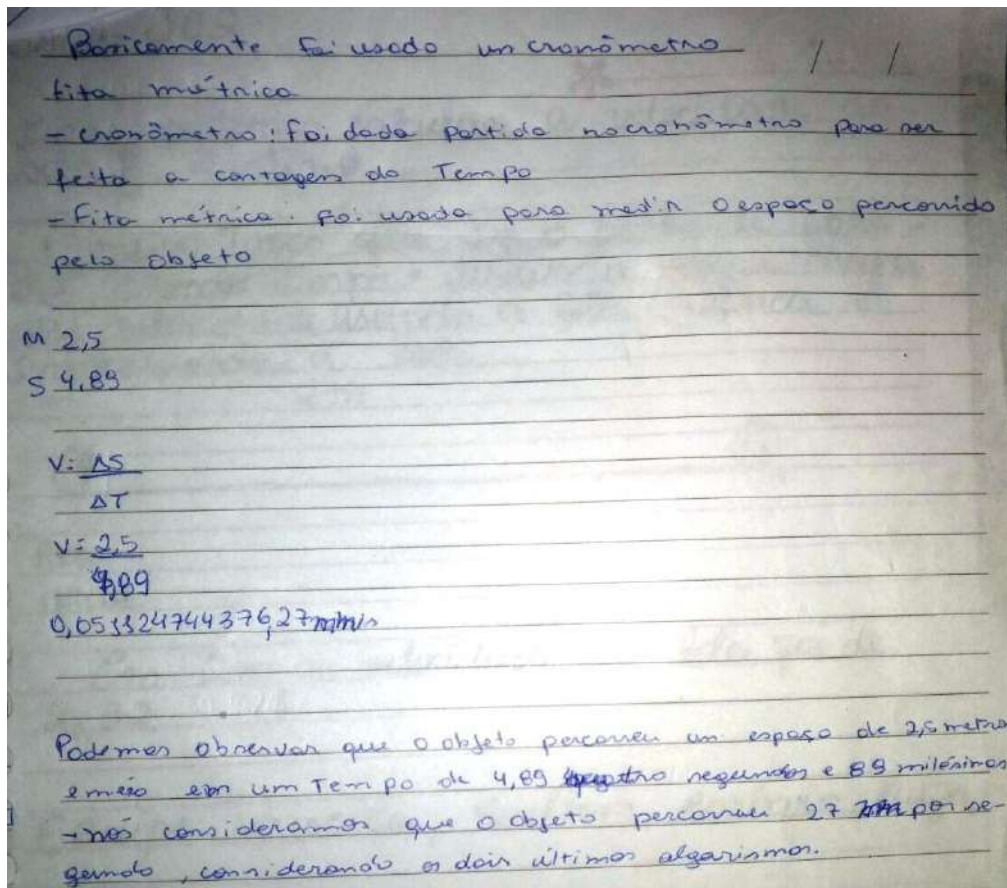 Basicamente foi usado un cronômetro / /
fita métrica
- cronômetro: foi dada partida no cronômetro para ser
feita a contagem do Tempo
- Fita métrica. foi usada para medir o espaço percorrido
pelo objeto
M 2,5
S 4,89
V= ΔS
ΔT
V= 2,5
4,89
0,0511247443 76,27
Podemos observar que o objeto percorreu um espaço de 2,5 metro
e meio em um Tempo de 4,89 segundos e 89 milésimos
- nós consideramos que o objeto percorreu 27 por se-
gundo, considerando os dois últimos algarismos.